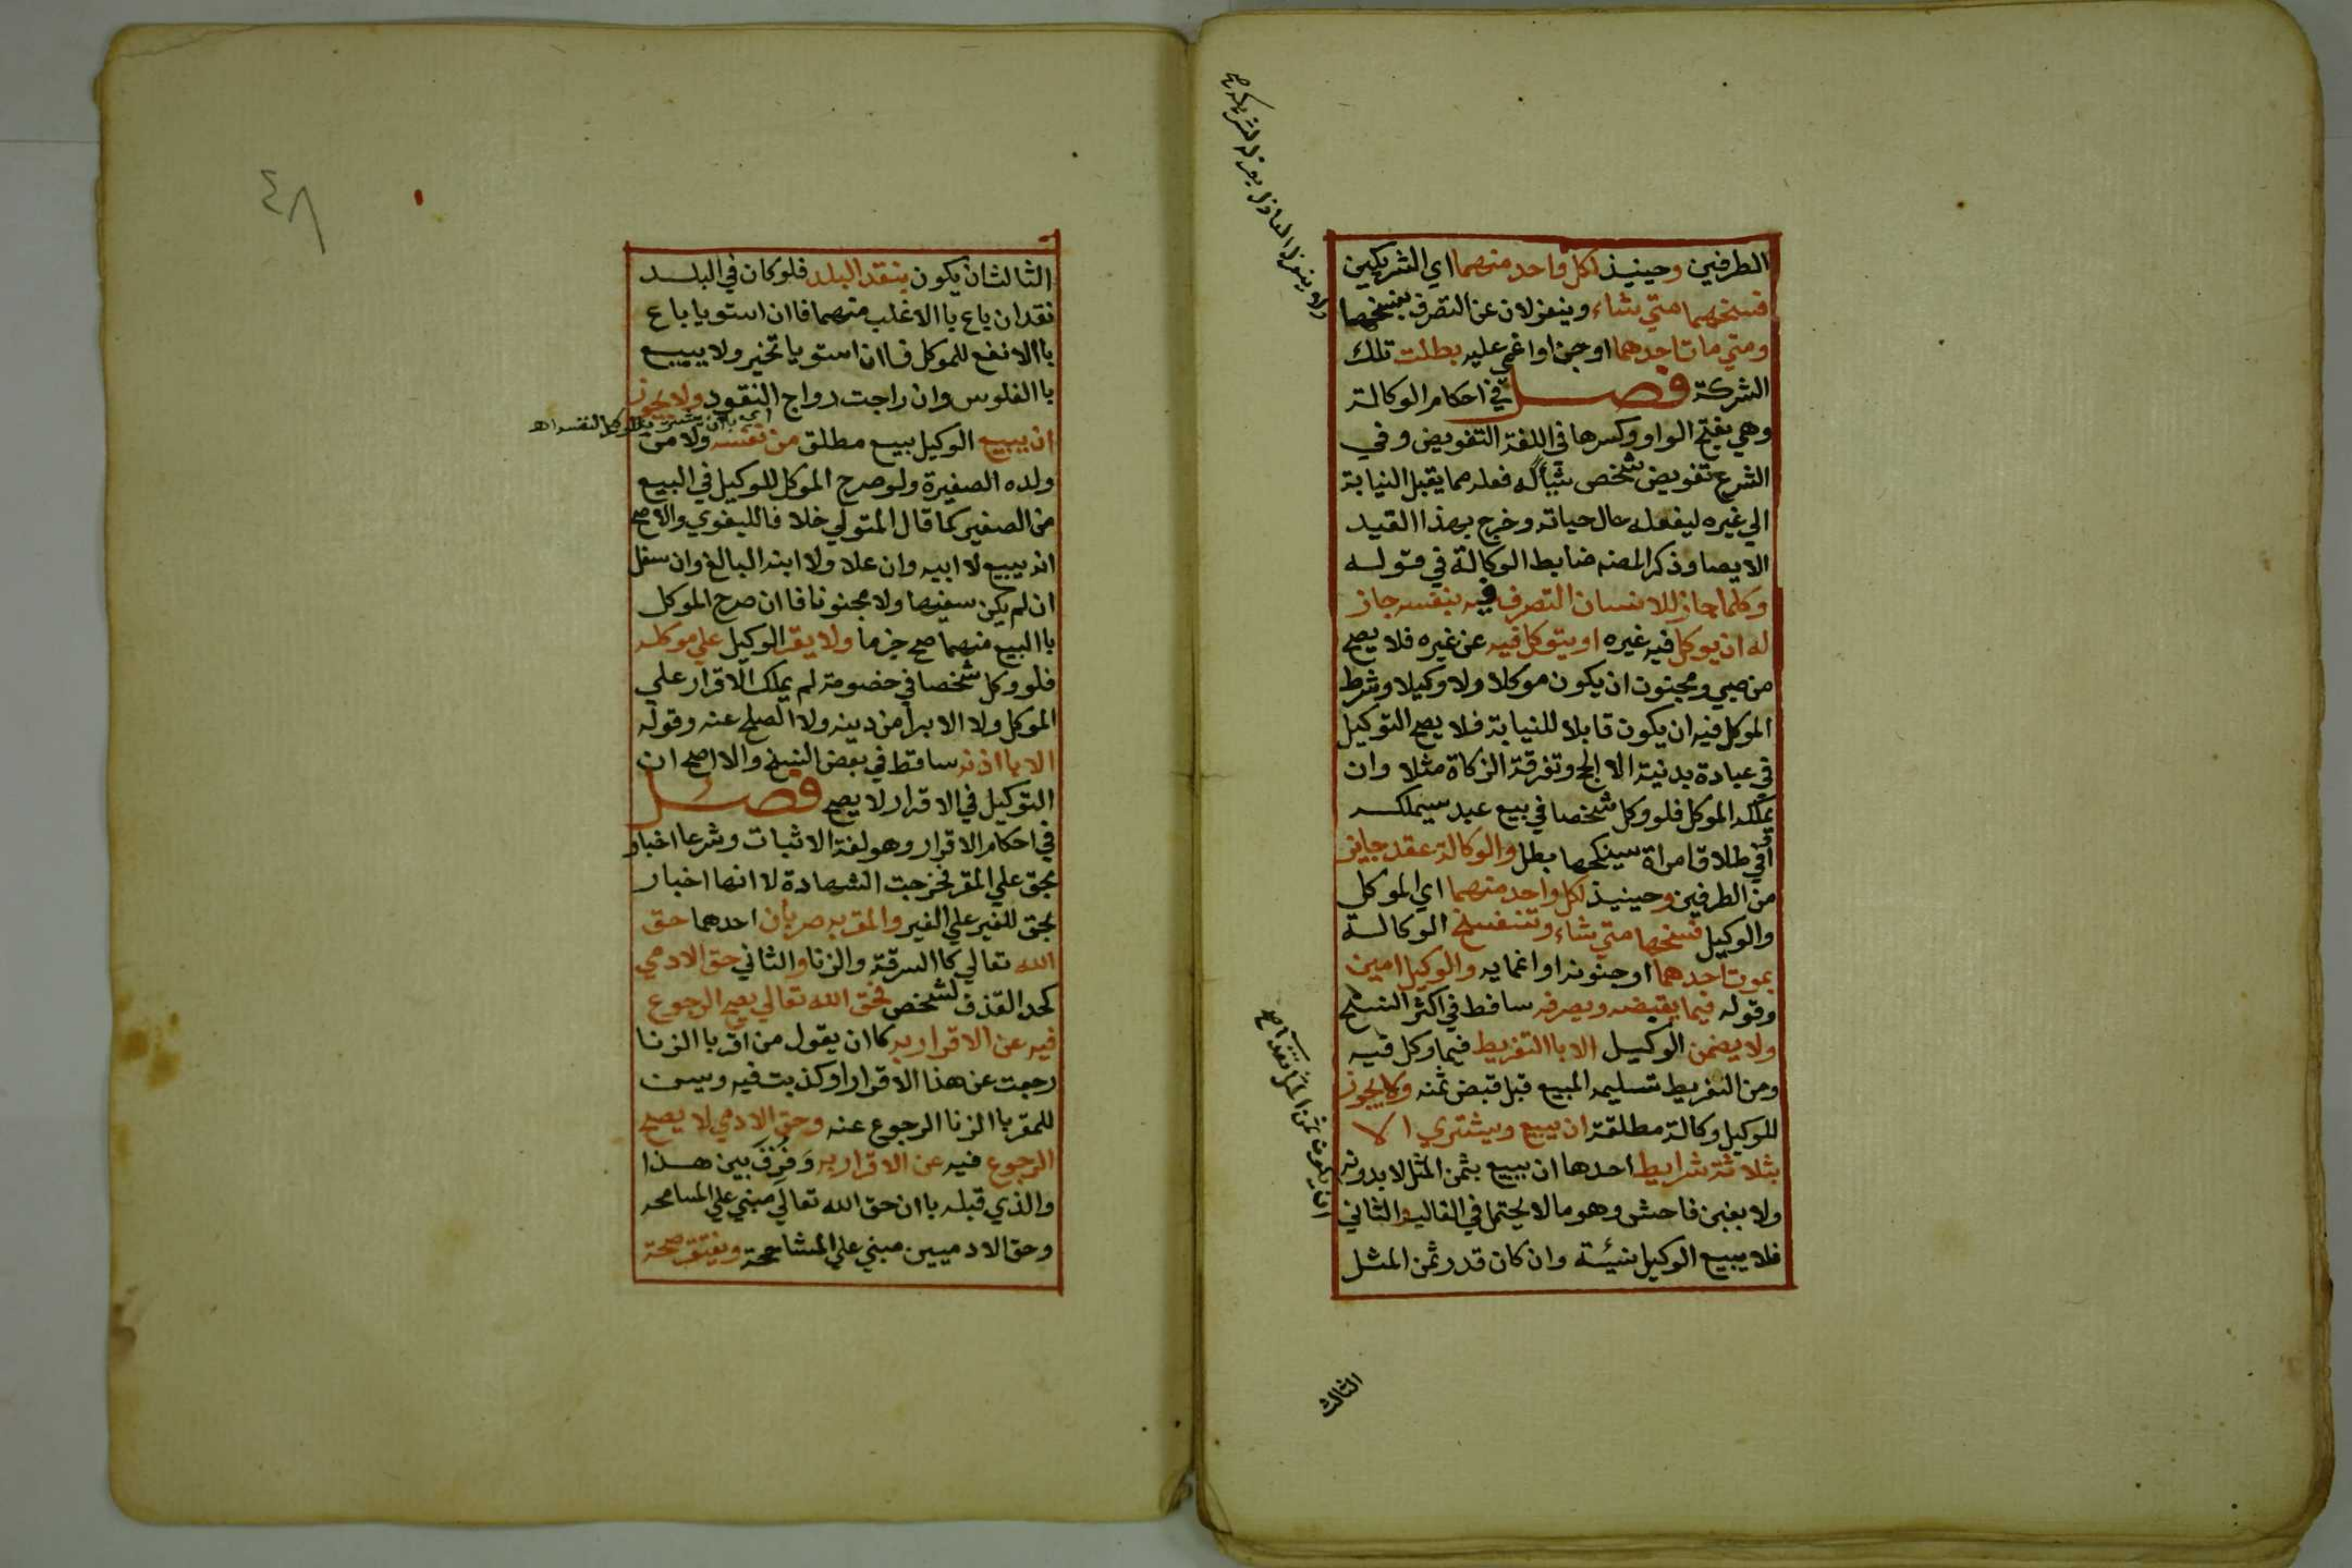 الطرفين وحينيذ لكل واحد منهما اي الشريكين
فسخهما متي شاء وينعزلان عن التصرف بفسخها
ومتي مات احدهما او جن او اغمي عليه بطلت تلك
الشركة فصل في احكام الوكالة
وهي بفتح الواو وكسرها في اللغة التفويض وفي
الشرع تفويض شخص شيأ له فعله مما يقبل النيابة
الي غيره ليفعله حال حياته وخرج بهذا القيد
الايصا وذكر المصنه ضابط الوكالة في قوله
وكلما جاز للانسان التصرف فيه بنفسه جاز
له ان يوكل فيه غيره او يتوكل فيه عن غيره فلا يصح
من صبي ومجنون ان يكون موكلا ولا وكيلا وشرط
الموكل فيه ان يكون قابلا للنيابة فلا يصح التوكيل
في عبادة بدنية الا الحج وتفرقة الزكاة مثلا وان
يملكه الموكل فلو وكل شخصا في بيع عبد سيملكه
او في طلاق امراة سينكحها بطل والوكالة عقد جايز
من الطرفين وحينيذ لكل واحد منهما اي الموكل
والوكيل فسخها متي شاء وتنفسخ الوكالة
بموت احدهما او جنونه او اغمايه والوكيل امين
وقوله فيما يقبضه ويصرفه ساقط في اكثر النسخ
ولا يضمن الوكيل الا باالتفريط فيما وكل فيه
ومن التفريط تسليمه المبيع قبل قبض ثمنه ولا يجوز
للوكيل وكالة مطلقة ان يبيع ويشتري الا
بثلاثة شرايط احدها ان يبيع بثمن المثل لا بدونه
ولا بغبن فاحش وهو ما لا يحتمل في الغالب الثاني
فلا يبيع الوكيل بنسيئة وان كان قدر ثمن المثل
الثالث
٤٨
الثالث ان يكون بنقد البلد فلو كان في البلد
نقدان باع باالاغلب منهما فاان استويا باع
باالانفع للموكل فاان استويا تخير ولا يبيع
باالفلوس وان راجت رواج النقود ولا يجوز
ان يبيع الوكيل بيع مطلق من نفسه ولا من
ولده الصغيرة ولو صرح الموكل للوكيل في البيع
من الصغير كما قال المتولي خلافا للبغوي والاصح
انه يبيع لاابيه وان علا ولاابنه البالغ وان سفل
ان لم يكن سفيها ولا مجنونا فاان صرح الموكل
باالبيع منهما صح جزما ولا يقر الوكيل علي موكله
فلو وكل شخصا في خصومة لم يملك الاقرار علي
الموكل ولا الابرأ من دينه ولا الصلح عنه وقوله
الا بااذنه ساقط في بعض النسخ والااصح ان
التوكيل في الاقرار لا يصح فصل
في احكام الاقرار وهو لغة الاثبات وشرعا اخبار
بحق علي المقر فخرجت الشهادة لاانها اخبار
بحق للغير علي الغير والمقر به ضربان احدهما حق
الله تعالي كاالسرقة والزنا والثاني حق الادمي
كحد القذف لشخص فحق الله تعالي يصح الرجوع
فيه عن الاقرار به كاان يقول من اقر باالزنا
رجعت عن هذا الاقرار او كذبت فيه ويسن
للمقر باالزنا الرجوع عنه وحق الادمي لا يصح
الرجوع فيه عن الاقرار به وفرق بين هذا
والذي قبله باان حق الله تعالي مبني علي المسامحه
وحق الادميين مبني علي المشاححة ويفتقر صحة